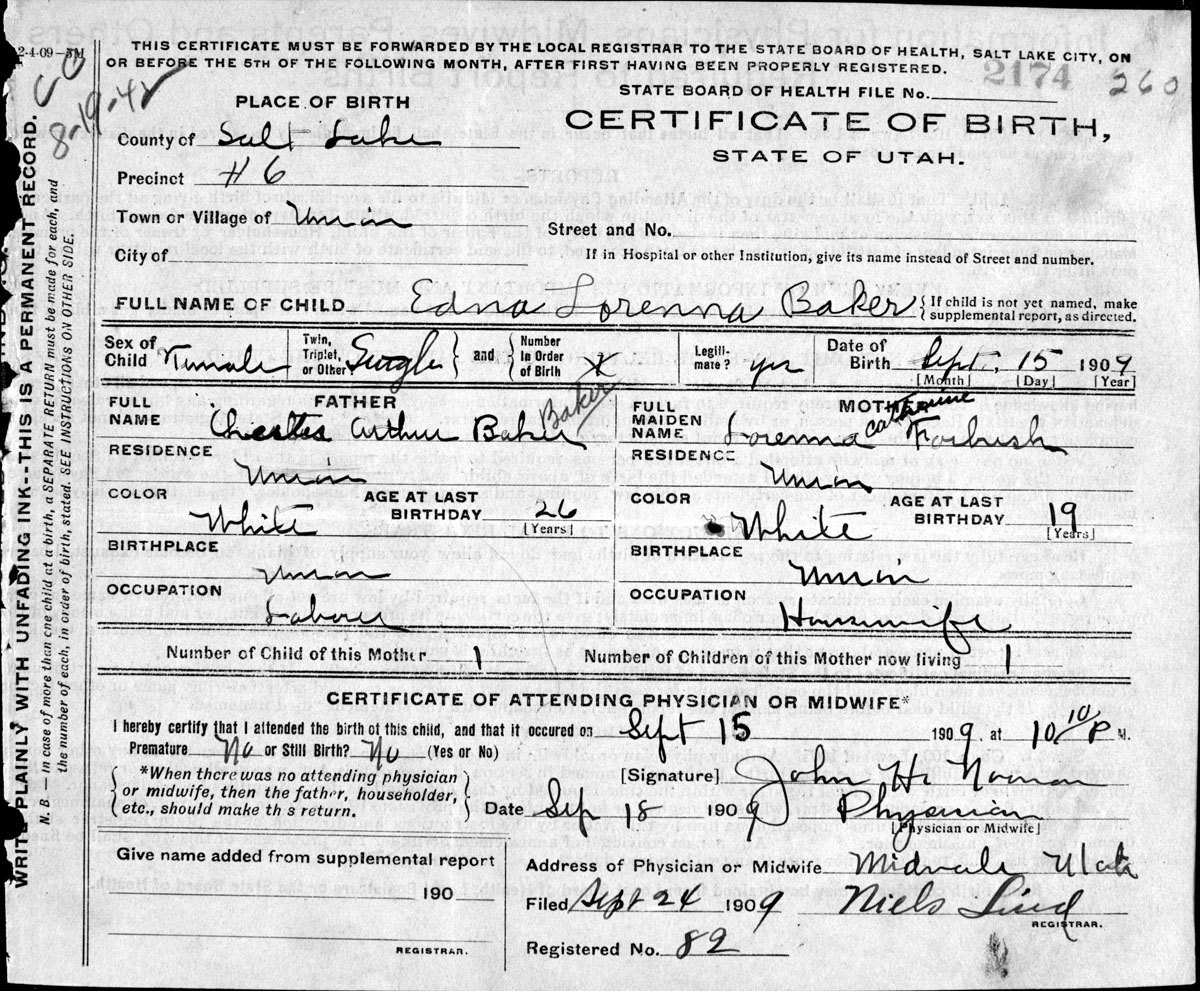 2-4-09—5M
THIS CERTIFICATE MUST BE FORWARDED BY THE LOCAL REGISTRAR TO THE STATE BOARD OF HEALTH, SALT LAKE CITY, ON
OR BEFORE THE 5TH OF THE FOLLOWING MONTH, AFTER FIRST HAVING BEEN PROPERLY REGISTERED.
2174
260
STATE BOARD OF HEALTH FILE No.
8-19-42
PLACE OF BIRTH
CERTIFICATE OF BIRTH,
STATE OF UTAH.
County of Salt Lake
Precinct #6
Town or Village of Union
Street and No.
City of
If in Hospital or other Institution, give its name instead of Street and number.
FULL NAME OF CHILD Edna Lorenna Baker { If child is not yet named, make supplemental report, as directed.
Sex of Child Female Twin, Triplet, or Other Single } and { Number In Order of Birth x Legiti-mate? yes Date of Birth Sept. 15 1909
[Month] [Day] [Year]
FATHER
FULL NAME Arthur Baker Baker
RESIDENCE Union
COLOR White AGE AT LAST BIRTHDAY 26 [Years]
BIRTHPLACE Union
OCCUPATION Laborer
MOTHER
FULL MAIDEN NAME Lorenna Catherine Forbush
RESIDENCE Union
COLOR White AGE AT LAST BIRTHDAY 19 [Years]
BIRTHPLACE Union
OCCUPATION Housewife
Number of Child of this Mother 1 Number of Children of this Mother now living 1
CERTIFICATE OF ATTENDING PHYSICIAN OR MIDWIFE*
I hereby certify that I attended the birth of this child, and that it occured on Sept 15 1909 at 10 10 P M.
Premature No or Still Birth? No (Yes or No)
*When there was no attending physician
or midwife, then the father, householder,
etc., should make this return.
[Signature] John H.
Date Sep 18 1909 Physician
[Physician or Midwife]
Give name added from supplemental report
190
REGISTRAR.
Address of Physician or Midwife Midvale Utah
Filed Sept 24 1909 Niels Lind
REGISTRAR.
Registered No. 82
WRITE PLAINLY WITH UNFADING INK--THIS IS A PERMANENT RECORD.
N. B.—In case of more than one child at a birth, a SEPARATE RETURN must be made for each, and
the number of each, in order of birth, stated. SEE INSTRUCTIONS ON OTHER SIDE.